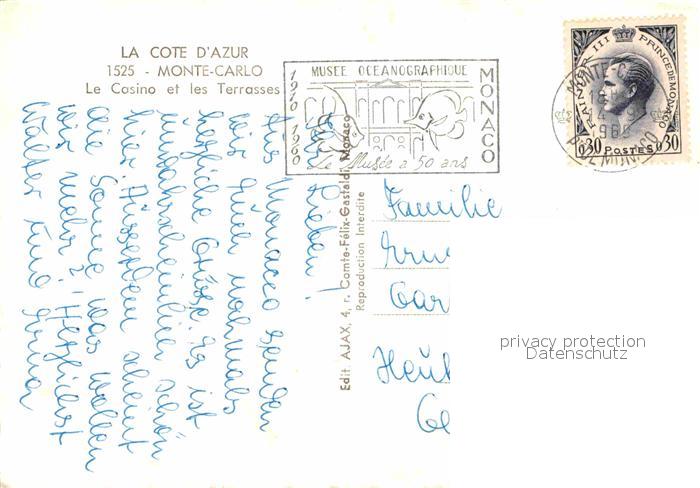 LA COTE D'AZUR
1525 - MONTE-CARLO
Le Casino et les Terrasses
1910 1960
MUSEE OCEANOGRAPHIQUE
MONACO
Le Musée a 50 ans
RAINIER III PRINCE DE MONACO
0,30 POSTES 0,30
Ihr Lieben!
Aus Monaco senden
wir Euch nochmals
herzliche Grüsse. Es ist
wunderschön
hier. Ausserdem scheint
die Sonne was wollen
wir mehr? Herzlichst
Walter und
Edit. AJAX, 4, r. Comte-Félix-Gastaldi, Monaco
Reproduction Interdite
Familie
privacy protection
Datenschutz